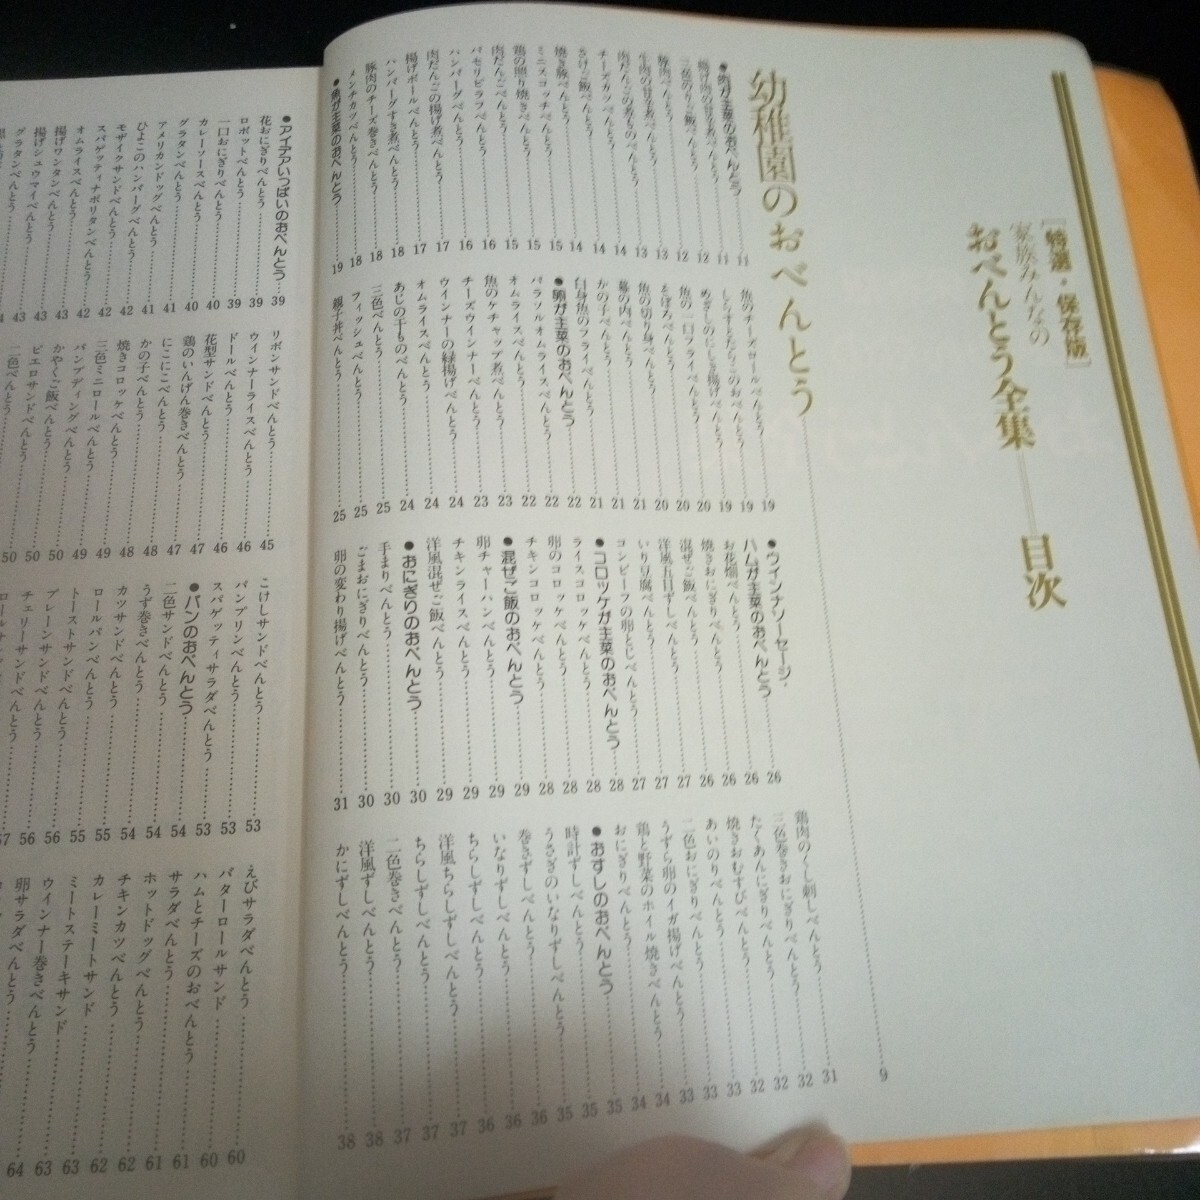 [特選・保存版]
家族みんなの
おべんとう全集──目次
幼稚園のおべんとう……9
●肉が主菜のおべんとう……11
揚げ肉の甘辛煮べんとう……11
三色のりご飯べんとう……12
豚肉べんとう……12
牛肉の甘辛煮べんとう……13
肉だんごの煮ものべんとう……13
チーズカツべんとう……14
さけご飯べんとう……14
焼き豚べんとう……15
ミニスコッチべんとう……15
鶏の照り焼きべんとう……15
肉だんごべんとう……16
パセリピラフべんとう……16
ハンバーグべんとう……17
肉だんごの揚げ煮べんとう……17
揚げボールべんとう……17
ハンバーグすき煮べんとう……18
豚肉のチーズ巻きべんとう……18
メンチカツべんとう……18
●魚が主菜のおべんとう……19
魚のチーズロールべんとう……19
しらすとたらこのおべんとう……19
めざしのにしき揚げべんとう……19
魚の一口フライべんとう……20
そぼろべんとう……20
魚の切り身べんとう……20
幕の内べんとう……21
かの子べんとう……21
白身魚のフライべんとう……21
●卵が主菜のおべんとう……22
パラソルオムライスべんとう……22
オムライスべんとう……22
魚のケチャップ煮べんとう……23
チーズウインナーべんとう……23
ウインナーの緑揚げべんとう……24
オムライスべんとう……24
あじの干ものべんとう……24
三色べんとう……25
フィッシュべんとう……25
親子丼べんとう……25
●ウィンナソーセージ・
ハムが主菜のおべんとう……26
お花畑べんとう……26
焼きおにぎりべんとう……26
混ぜご飯べんとう……26
洋風五目ずしべんとう……27
いり豆腐べんとう……27
コンビーフの卵とじべんとう……27
●コロッケが主菜のおべんとう……28
ライスコロッケべんとう……28
卵のコロッケべんとう……28
チキンコロッケべんとう……28
●混ぜご飯のおべんとう……29
卵チャーハンべんとう……29
チキンライスべんとう……29
洋風混ぜご飯べんとう……29
●おにぎりのおべんとう……30
手まりべんとう……30
ごまおにぎりべんとう……30
卵の変わり揚げべんとう……31
鶏肉のくし刺しべんとう……31
三色巻きおにぎりべんとう……32
たくあんにぎりべんとう……32
焼きおむすびべんとう……32
あいのりべんとう……33
二色おにぎりべんとう……33
うずら卵のイガ揚げべんとう……33
鶏と野菜のホイル焼きべんとう……34
おにぎりべんとう……34
●おすしのおべんとう……35
時計ずしべんとう……35
うさぎのいなりずしべんとう……35
巻きずしべんとう……36
いなりずしべんとう……36
ちらしずしべんとう……36
洋風ちらしずしべんとう……37
ちらしずしべんとう……37
二色巻きべんとう……37
洋風ずしべんとう……38
かにずしべんとう……38
●アイデアいっぱいのおべんとう……39
花おにぎりべんとう……39
ロボットべんとう……39
一口おにぎりべんとう……40
カレーソースべんとう……40
グラタンべんとう……40
アメリカンドッグべんとう……41
ひよこのハンバーグべんとう……41
モザイクサンドべんとう……42
スパゲッティナポリタンべんとう……42
オムライスべんとう……42
揚げワンタンべんとう……43
揚げシュウマイべんとう……43
グラタンべんとう……43
リボンサンドべんとう……45
ウインナーライスべんとう……46
ドールべんとう……46
花型サンドべんとう……47
鶏のいんげん巻きべんとう……47
にこにこべんとう……48
かの子べんとう……48
焼きコロッケべんとう……48
三色ミニロールべんとう……49
パンプディングべんとう……49
かやくご飯べんとう……50
ピエロサンドべんとう……50
二色べんとう……50
こけしサンドべんとう……53
パンプリンべんとう……53
スパゲッティサラダべんとう……53
●パンのおべんとう……54
二色サンドべんとう……54
うず巻きべんとう……54
カツサンドべんとう……54
ロールパンべんとう……55
トーストサンドべんとう……55
プレーンサンドべんとう……56
チェリーサンドべんとう……56
えびサラダべんとう……60
バターロールサンド……60
ハムとチーズのおべんとう……61
サラダべんとう……61
ホットドッグべんとう……61
チキンカツべんとう……62
カレーミートサンド……62
ミートステーキサンド……63
ウインナー巻きべんとう……63
卵サラダべんとう……64